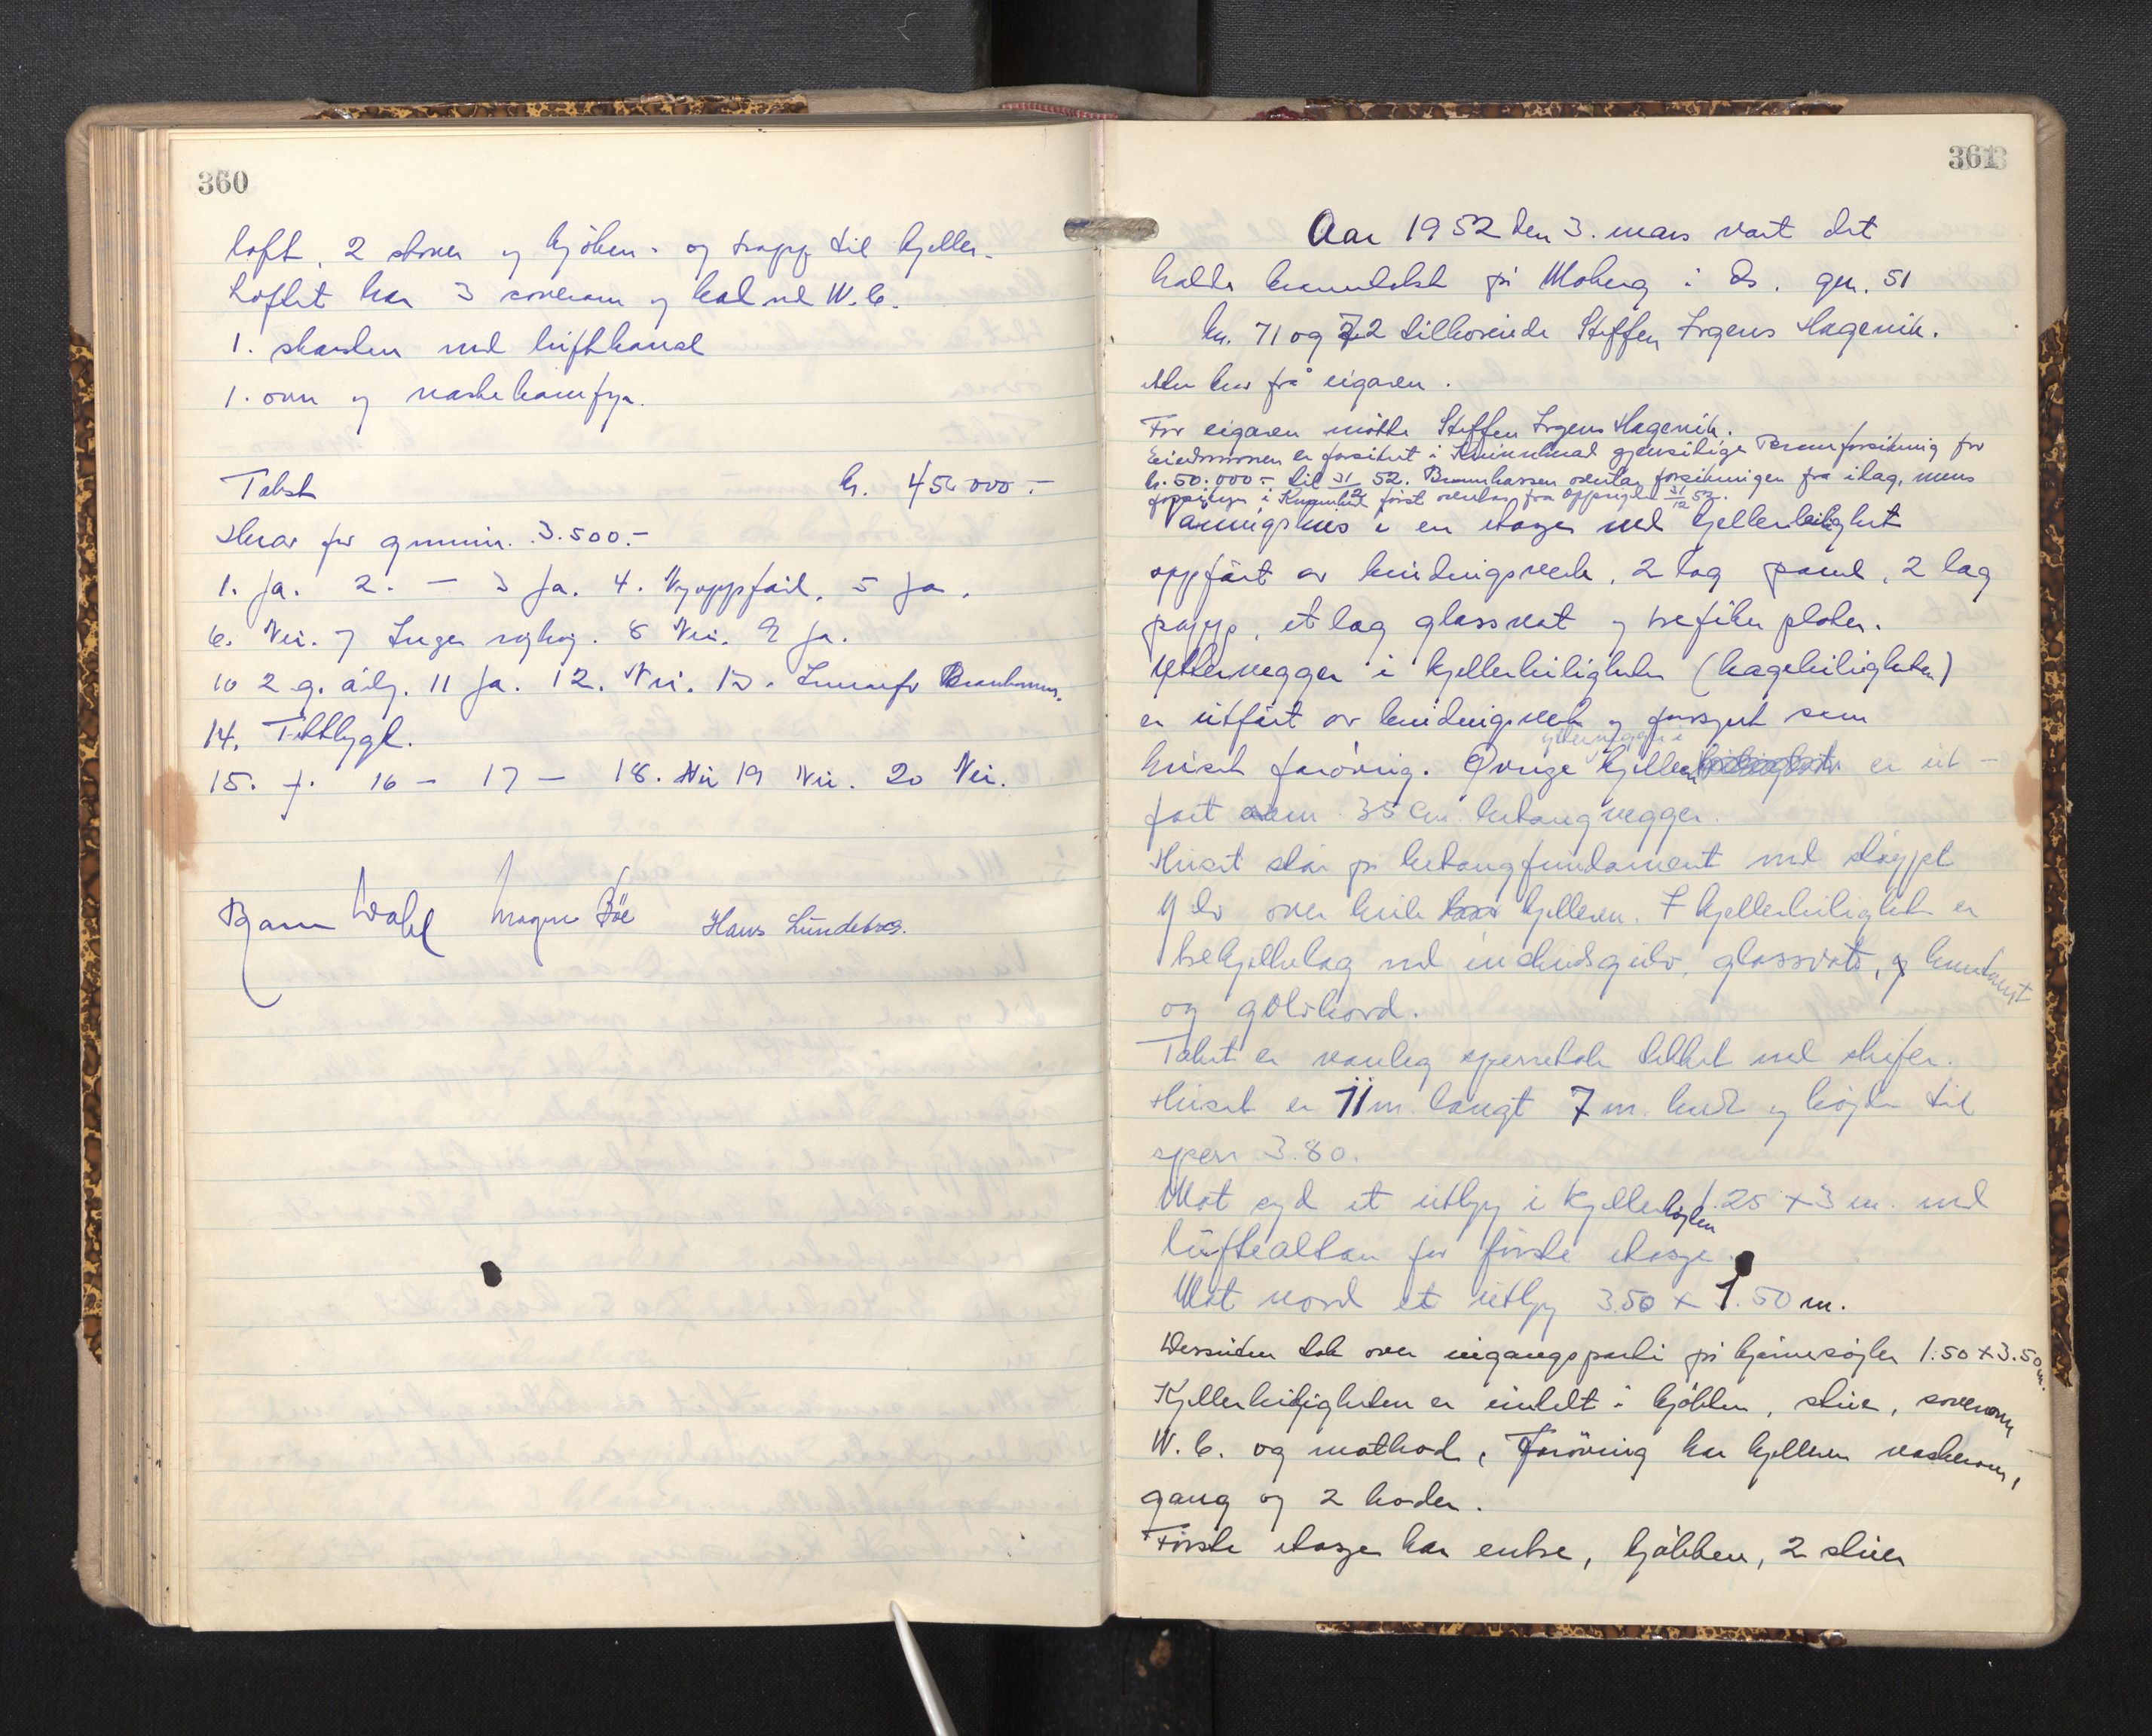 360
loft, 2 stover og kjöken og trapp til kjeller.
Loftet har 3 soverom og bad med W.C.
1. skorsten med luftkanal
1. ovn og vaskekomfyr.
Takst kr. 45.000.-
Herav for grunnm. 3.500.-
1. Ja. 2. — 3 Ja. 4. Nyoppfört. 5 Ja.
6. Nei. 7 Ingen 8 Nei. 9 Ja.
10 2 g. årlig. 11 Ja. 12. Nei. 13. Innanfor
14. Tettbygt.
15. 16 — 17 — 18. Nei 19 Nei. 20 Nei.
Bjarne Dahl Magne Böe Hans Lundetræ.
361
Aar 1952 den 3. mars vart det
halde branntakst på Moberg i Os. gnr. 51
bn. 71 og 72 tilhörende Steffen Irgens Hagevik.
etter krav frå eigaren.
For eigaren mötte Steffen Irgens Hagevik.
Eiendommen er forsikret i gjensidige Brannforsikring for
kr. 50.000.- til 31/12 52. Brannkassen overtar forsikringen fra idag, mens
först overtas fra 31/12 52.
Vaaningshus i en etasje med kjellerleilighet
oppfört av bindingsverk, 2 lag panel, 2 lag
papp, et lag glassvat og trefiber plater.
Yttervegger i kjellerleiligheten (hageleiligheten)
er utfört av bindingsverk og forsynt som
huset forövrig. Övrige yttervegger i kjelleren er ut-
fört som 35 cm. betongvegger.
Huset står på betongfundament med stöypt
golv over hele kjelleren. I kjellerleilighet er
trebjelkelag med innskudsgulv, glassvatt,
og golvbord.
Taket er vanleg sperretak tekket med skifer.
Huset er 11 m. langt 7 m. bredt og höyde til
sperr 3.80.
Mot syd et utbygg i kjellerhöyden 1.25 x 3 m. med
luftealtan for förste etasje.
Mot nord et utbygg 3.50 x 1.50 m.
Dessuten tak over inngangsparti på hjörnesöyler 1.50 x 3.50 m.
Kjellerleiligheten er innbelt i kjökken, stue, soverom
W.C. og matbod. Forövrig har kjelleren vaskerom,
gang og 2 boder.
Förste etasje har entre, kjökken, 2 stuer